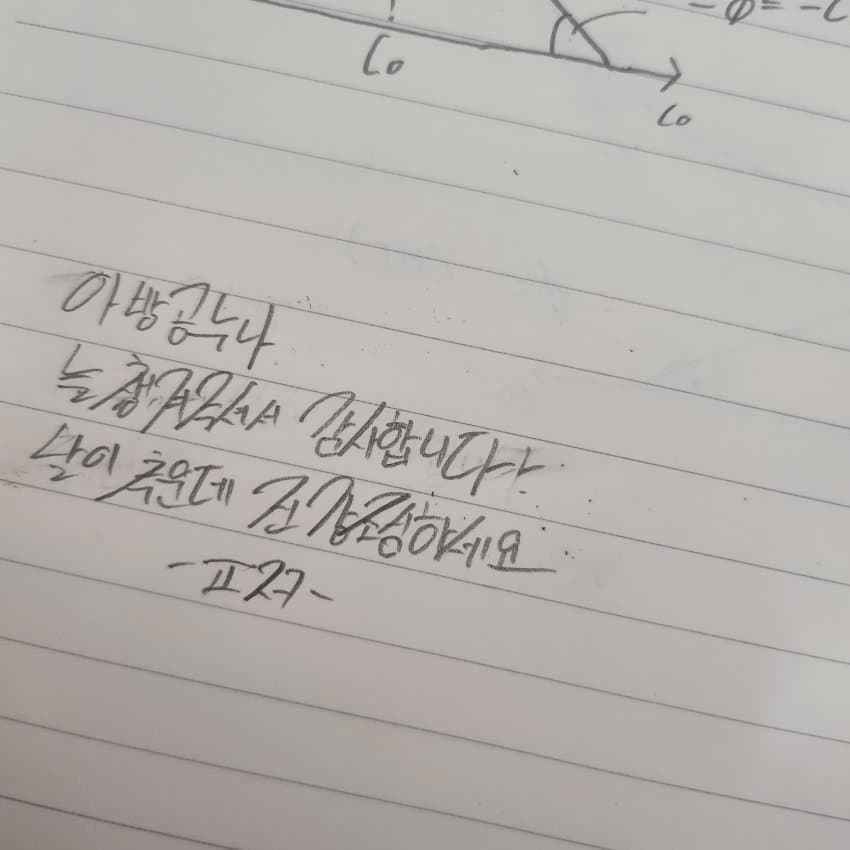 - Φ = -
Co
Co
아방공누나
늘 챙겨줘서 감사합니다!
날이 추운데 건강조심하세요